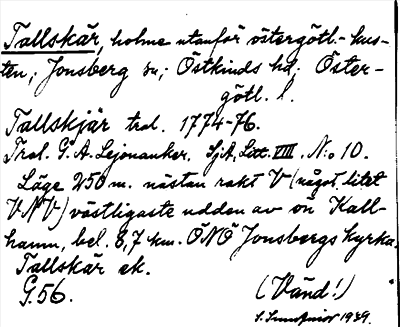 Tallskär, holme utanför östergötl.-kus-
ten; Jonsberg sn; Östkinds hd; Öster-
götl. l.
Tallskjär trol. 1774-76.
Trol. G. A. Lejonanker. SjA, Litt. VIII. No 10.
Läge 250 m. nästan rakt V (något litet
VNV) västligaste udden av ön Kall-
hamn, bel. 8,7 km. ÖNÖ Jonsbergs kyrka.
Tallskär ek.
G. 56.
(Vänd!)
1939.